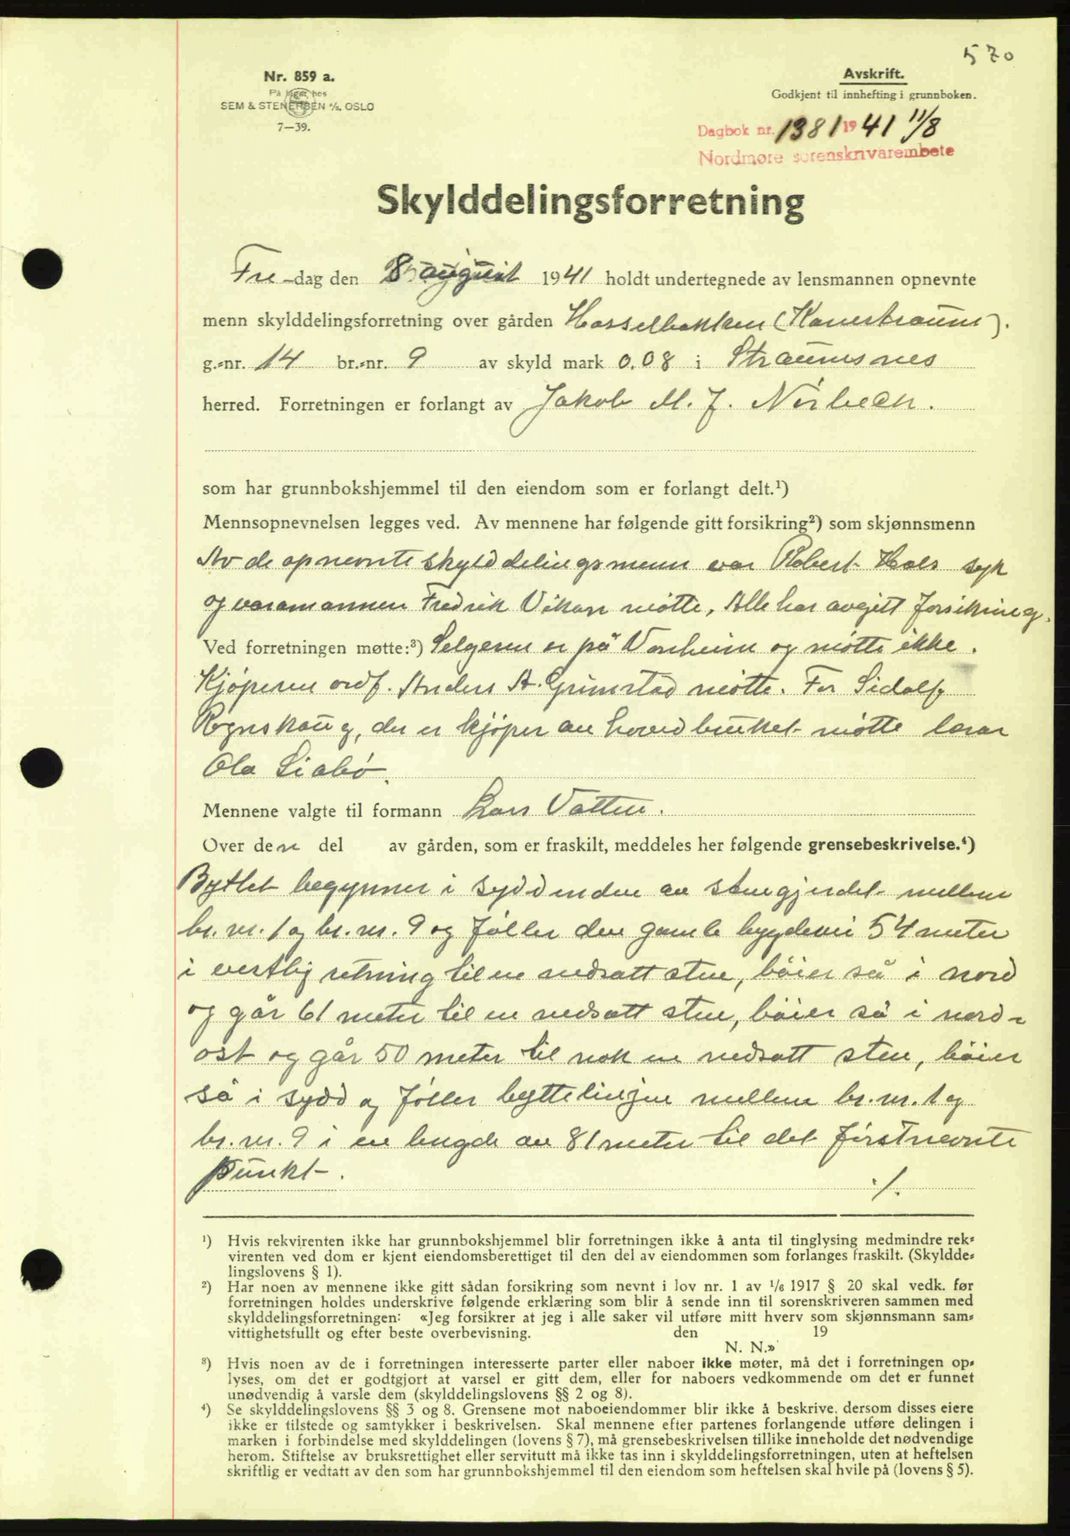 570
Nr. 859 a.
På lager hos
SEM & STENERSEN A/S. OSLO
7—39.
Avskrift.
Godkjent til innhefting i grunnboken.
Dagbok nr. 1381 1941 11/8
Nordmøre sorenskrivarembete
Skylddelingsforretning
Fre-dag den 8 august 1941 holdt undertegnede av lensmannen opnevnte
menn skylddelingsforretning over gården Hasselbakken (Kanestraum).
g.-nr. 14 br.-nr. 9 av skyld mark 0.08 i Straumsnes
herred. Forretningen er forlangt av Jakob M. J. Nörbech.
som har grunnbokshjemmel til den eiendom som er forlangt delt.¹)
Mennsopnevnelsen legges ved. Av mennene har følgende gitt forsikring²) som skjønnsmenn
Av de opnevnte skylddelingsmenn var Robert Hals syk
og varamannen Fredrik Vikan møtte, Alle har avgitt forsikring.
Ved forretningen møtte:³) Selgeren er på Vonheim og møtte ikke.
Kjøperen ordf. Anders A. Grimstad møtte. For Sidolf
Rognskaug, der er kjøper av hovedbruket møtte lærar
Ola Liabø.
Mennene valgte til formann Lars Vatten.
Over den del av gården, som er fraskilt, meddeles her følgende grensebeskrivelse.⁴)
Byttet begynner i syddenden av stengjerdet mellem
br. nr. 1 og br. nr. 9 og føller den gamle bygdevei 54 meter
i vestlig retning til en nedsatt sten, bøier så i nord
og går 61 meter til en nedsatt sten, bøier så i nord-
ost og går 50 meter til nok en nedsatt sten, bøier
så i sydd og føller byttelinjen mellem br. nr. 1 og
br. nr. 9 i en lengde av 81 meter til det førstnevnte
punkt.
./.
¹) Hvis rekvirenten ikke har grunnbokshjemmel blir forretningen ikke å anta til tinglysing medmindre rek-
virenten ved dom er kjent eiendomsberettiget til den del av eiendommen som forlanges fraskilt. (Skyldde-
lingslovens § 1).
²) Har noen av mennene ikke gitt sådan forsikring som nevnt i lov nr. 1 av 1/6 1917 § 20 skal vedk. før
forretningen holdes underskrive følgende erklæring som blir å sende inn til sorenskriveren sammen med
skylddelingsforretningen: «Jeg forsikrer at jeg i alle saker vil utføre mitt hverv som skjønnsmann sam-
vittighetsfullt og efter beste overbevisning. den 19
N. N.»
³) Hvis noen av de i forretningen interesserte parter eller naboer ikke møter, må det i forretningen op-
lyses, om det er godtgjort at varsel er gitt dem, eller for naboers vedkommende om det er funnet
unødvendig å varsle dem (skylddelingslovens §§ 2 og 8).
⁴) Se skylddelingslovens §§ 3 og 8. Grensene mot naboeiendommer blir ikke å beskrive, dersom disses eiere
ikke er tilstede og samtykker i beskrivelsen. Skal mennene efter partenes forlangende utføre delingen i
marken i forbindelse med skylddelingen (lovens § 7), må grensebeskrivelsen tillike inneholde det nødvendige
herom. Stiftelse av bruksrettighet eller servitutt må ikke tas inn i skylddelingsforretningen, uten at heftelsen
skriftlig er vedtatt av den som har grunnbokshjemmel til den eiendom som heftelsen skal hvile på (lovens § 5).